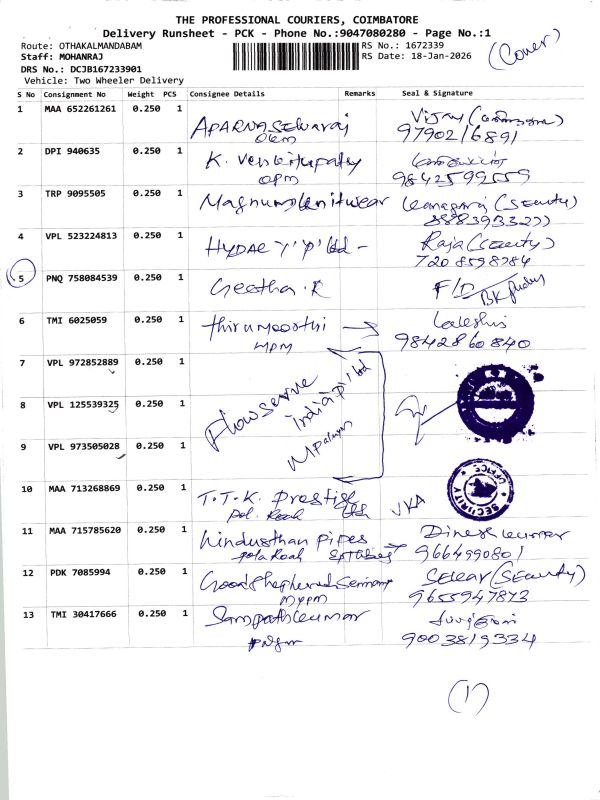 THE PROFESSIONAL COURIERS, COIMBATORE
Delivery Runsheet - PCK - Phone No.:9047080280 - Page No.:1
Route: OTHAKALMANDABAM RS No.: 1672339
Staff: MOHANRAJ RS Date: 18-Jan-2026
(Cover)
DRS No.: DCJB167233901
Vehicle: Two Wheeler Delivery
S No Consignment No Weight PCS Consignee Details Remarks Seal & Signature
1 MAA 652261261 0.250 1 APARNA Selvaraj Vijay
OKM 9790216891
2 DPI 940635 0.250 1 K. Venkitupathy
OPM 9842599559
3 TRP 9095505 0.250 1 Magnum Knitwear Kanagaraj (Security)
4 VPL 523224813 0.250 1 HYDAC Raja (Security)
7208598784
5 PNQ 758084539 0.250 1 Geetha.R F/D
6 TMI 6025059 0.250 1 thirumoorthi
MPM 9842860840
7 VPL 972852889 0.250 1
Flowserve
India
8 VPL 125539325 0.250 1
9 VPL 973505028 0.250 1
OFFICE
SECURITY
10 MAA 713268869 0.250 1 T.T.K. Prestige
Pol. Road
11 MAA 715785620 0.250 1 Hindusthan Pipes Dinesh kumar
Road 9664990801
12 PDK 7085994 0.250 1 Good Shepherd Seminary (Security)
Mypm 9655947873
13 TMI 30417666 0.250 1 Sampathkumar
9003819334
(1)